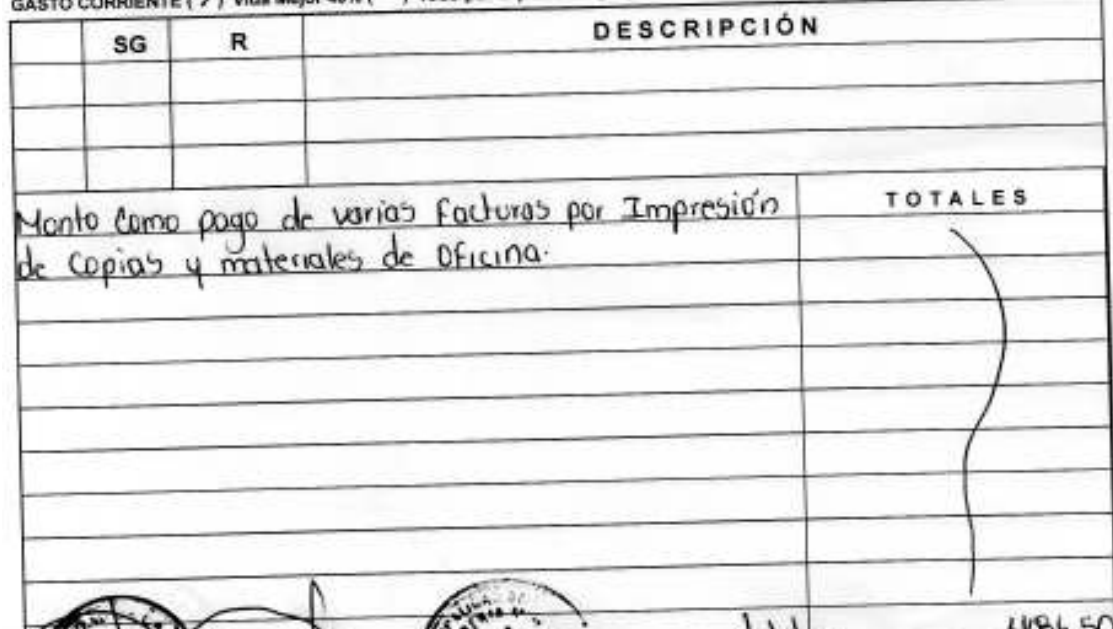 GASTO CORRIENTE
SG R DESCRIPCIÓN
Monto como pago de varias facturas por Impresión
TOTALES
de copias y materiales de Oficina.